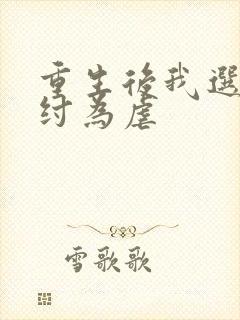 重生後我選
紂為虐
雪歌歌